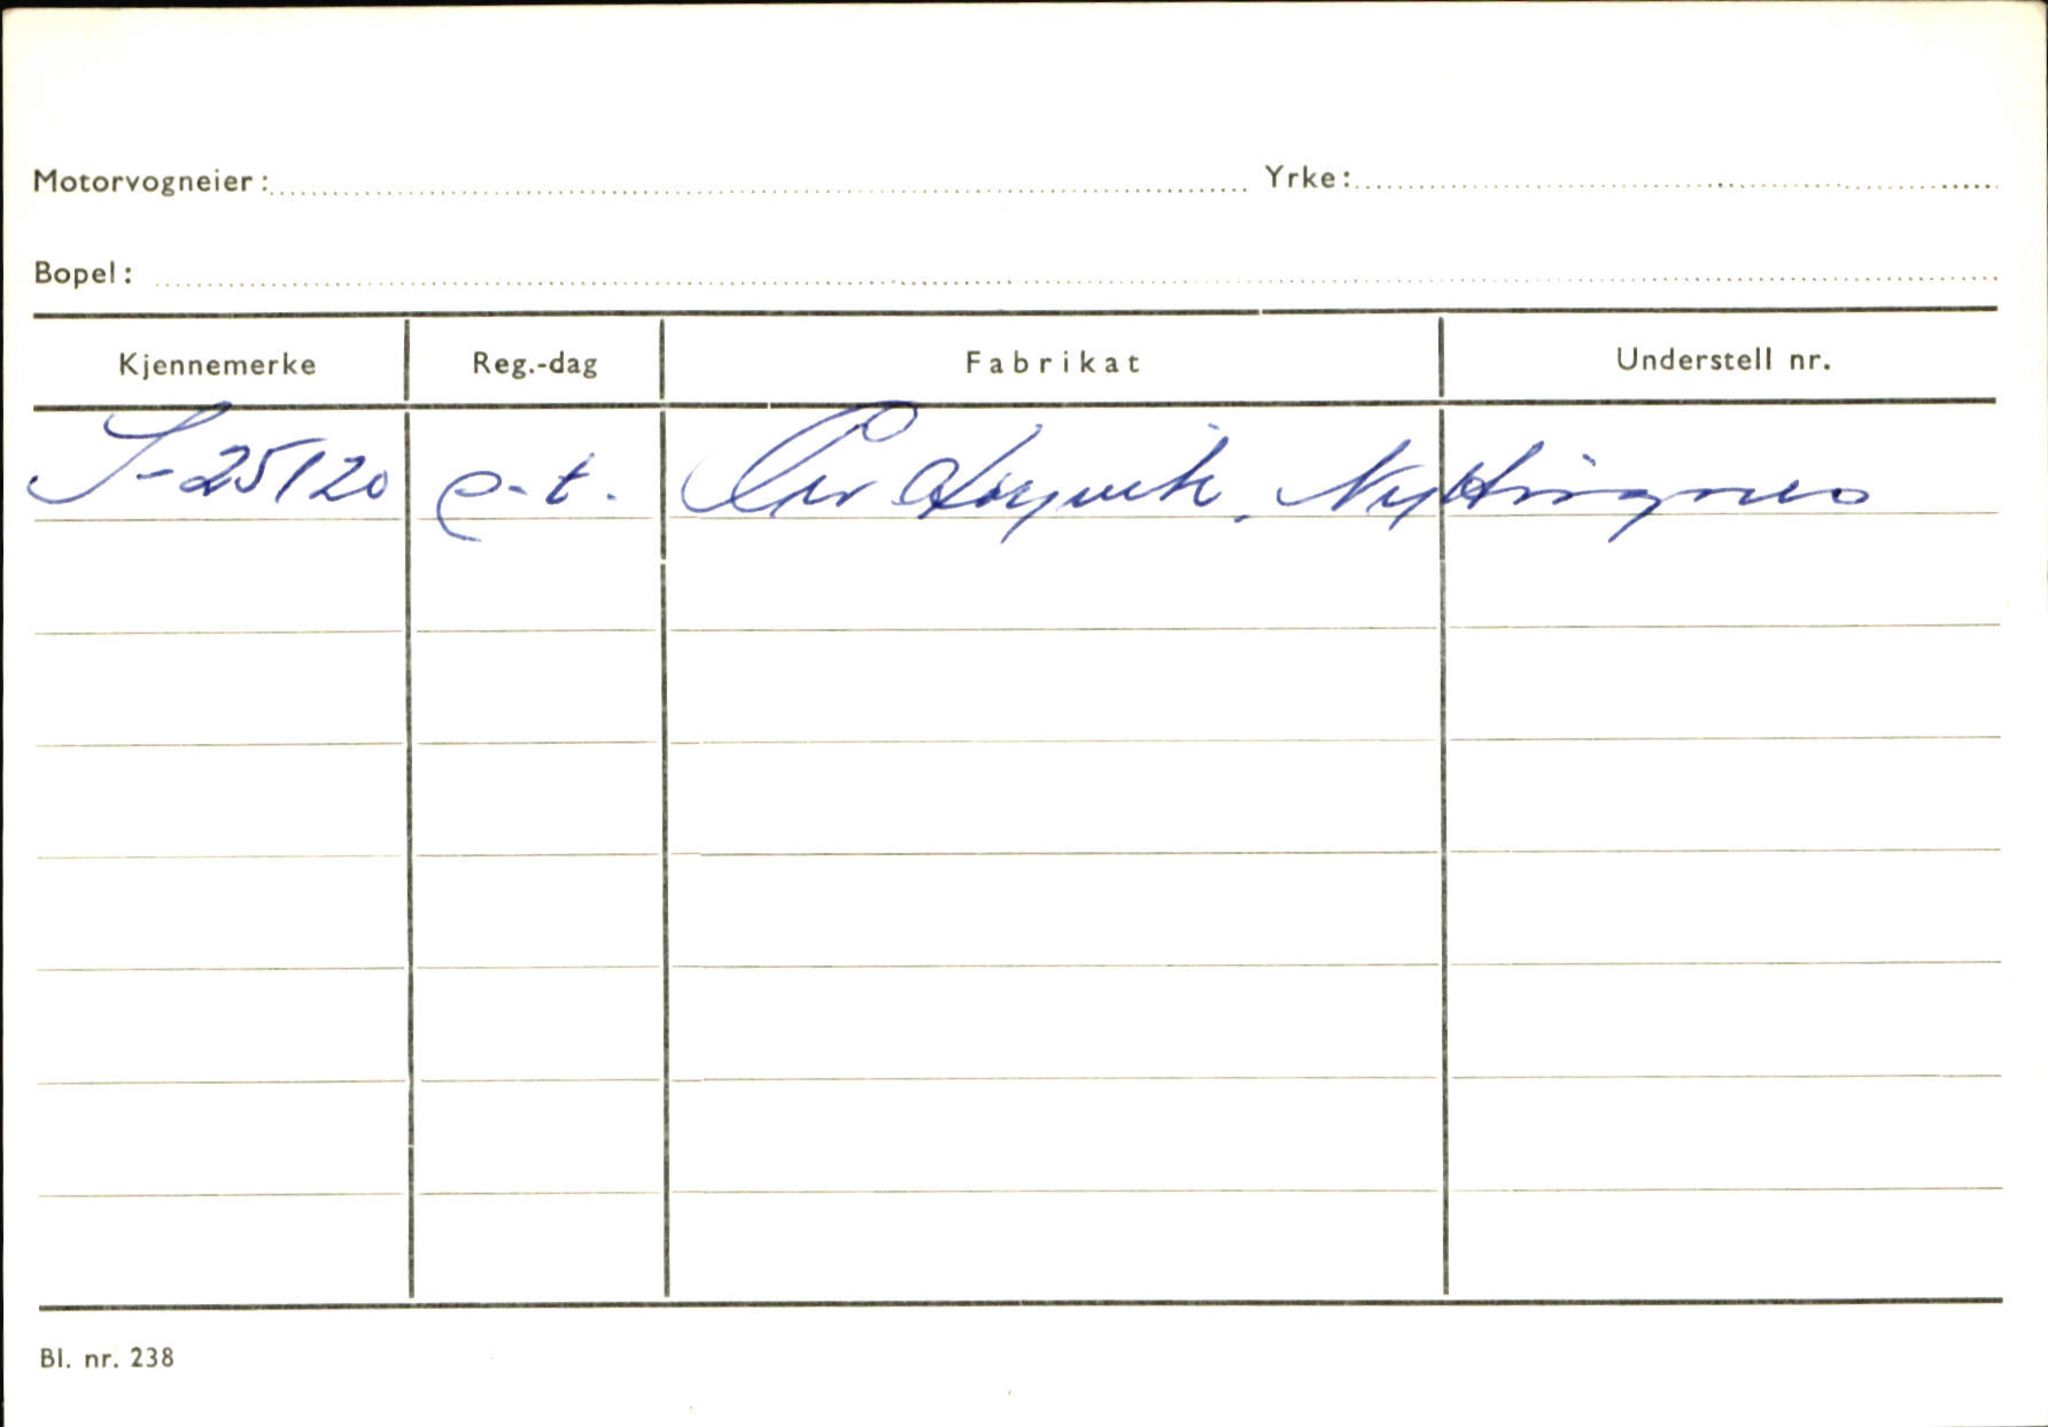 Motorvogneier: Yrke:
Bopel:
Kjennemerke Reg.-dag Fabrikat Understell nr.
S-25120 e.t. Per Nyttingnes
Bl. nr. 238